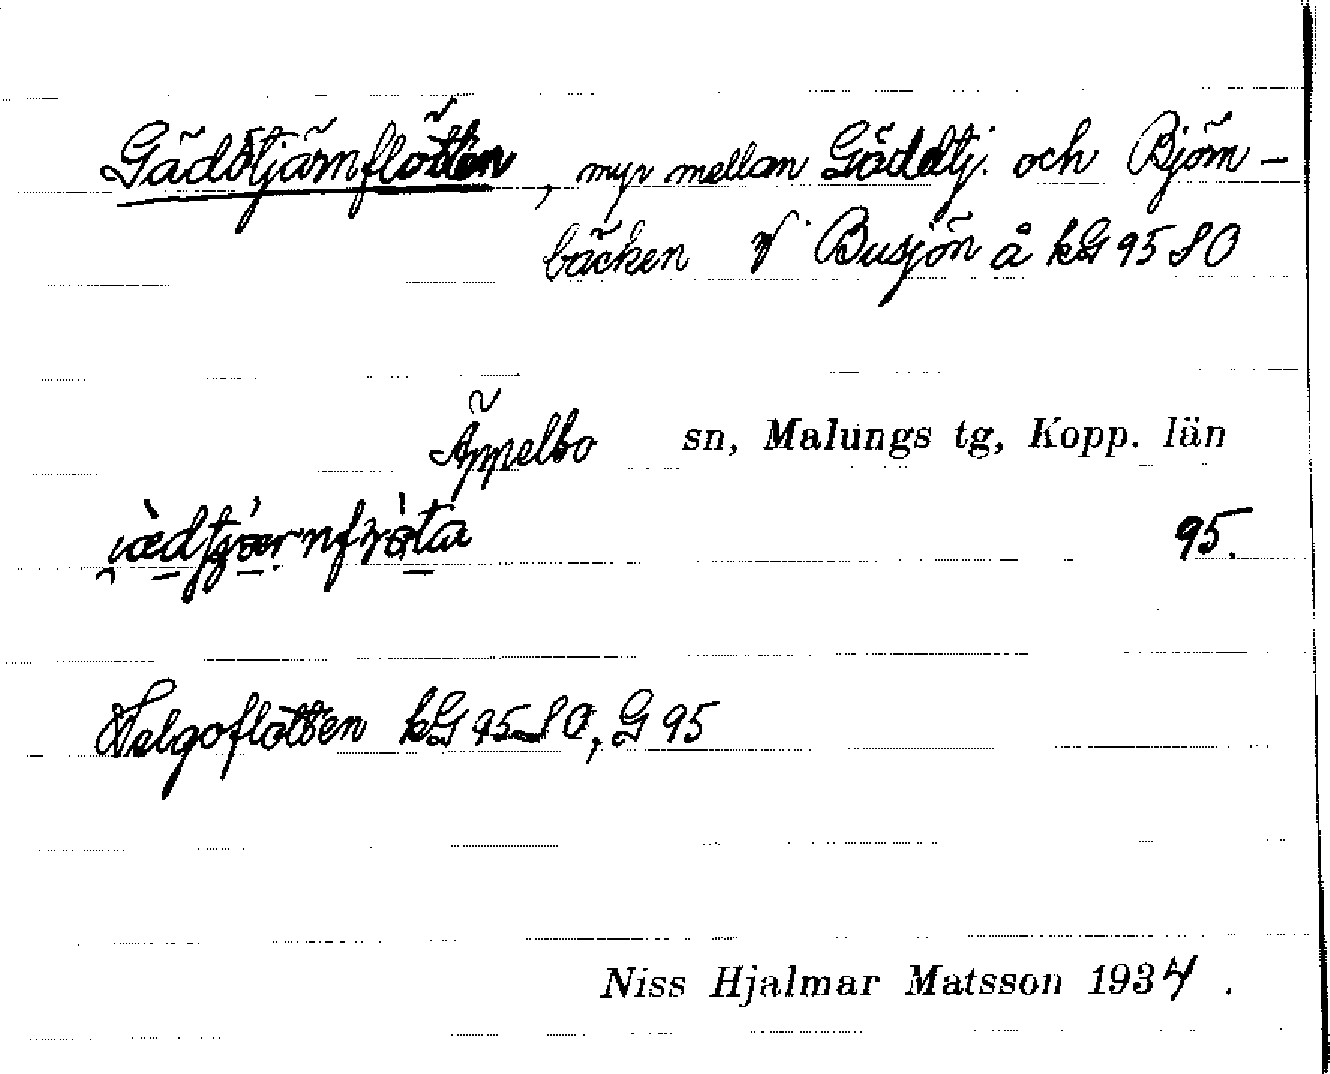 Gäddtjärnflötten, myr mellan Gäddtj. och Björn-
bäcken V Busjön å kG 95 SO
Äppelbo sn, Malungs tg, Kopp. län
95.
Helgoflötten kG 95 SO, G 95
Niss Hjalmar Matsson 1934.